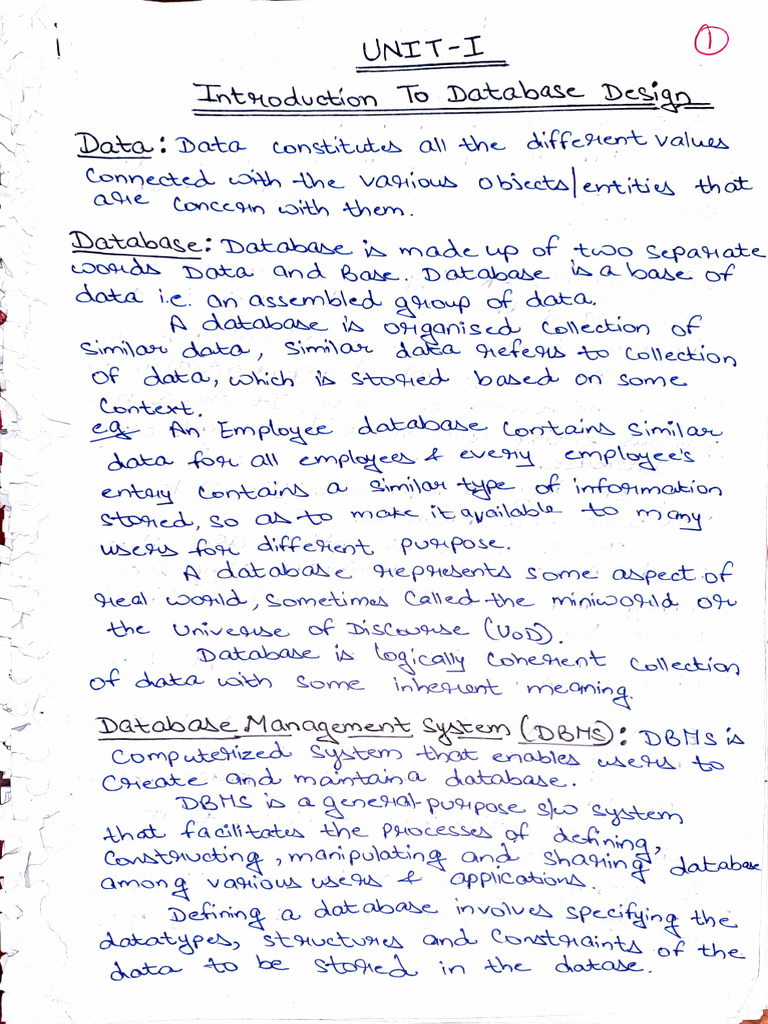 UNIT-I
1
Introduction To Database Design
Data: Data constitutes all the different values
connected with the various objects/entities that
are concern with them.
Database: Database is made up of two separate
words Data and Base. Database is a base of
data i.e. an assembled group of data.
A database is organised collection of
similar data, similar data refers to collection
of data, which is stored based on some
context.
eg An Employee database contains similar
data for all employees & every employee's
entry contains a similar type of information
stored, so as to make it available to many
users for different purpose.
A database represents some aspect of
real world, sometimes called the miniworld or
the Universe of Discourse (UoD).
Database is logically coherent collection
of data with some inherent meaning.
Database Management System (DBMS): DBMS is
computerized system that enables users to
create and maintain a database.
DBMS is a general-purpose s/w system
that facilitates the processes of defining,
constructing, manipulating and sharing database
among various users & applications.
Defining a database involves specifying the
datatypes, structures and constraints of the
data to be stored in the datase.